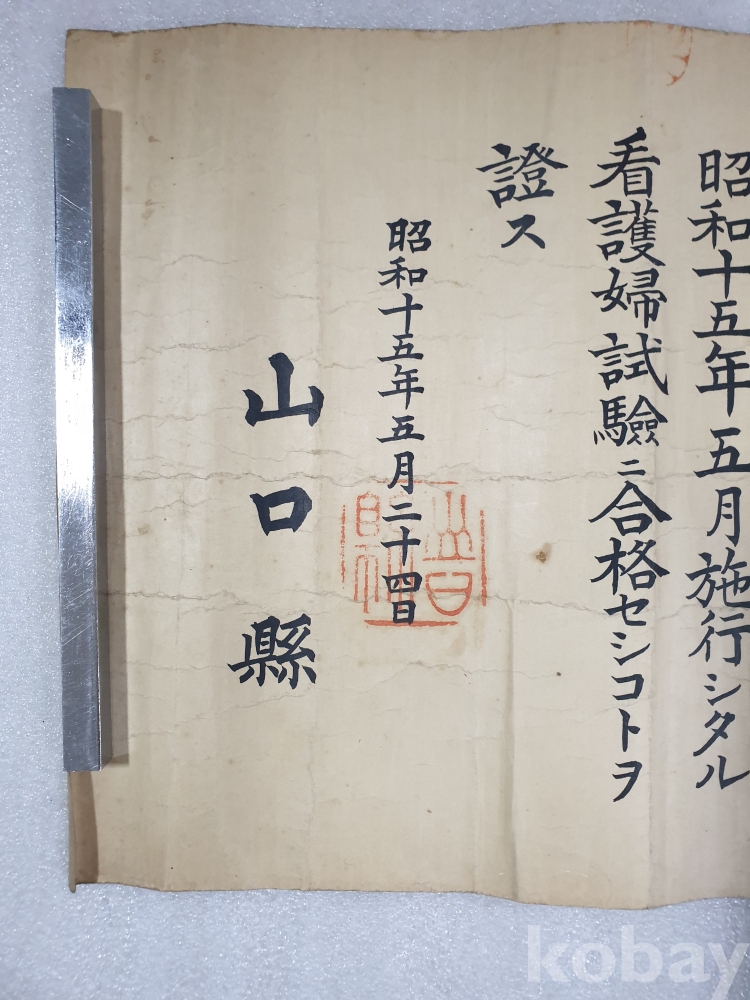 昭和十五年五月施行シタル
看護婦試驗ニ合格セシコトヲ
證ス
昭和十五年五月二十四日
山口縣
kobay